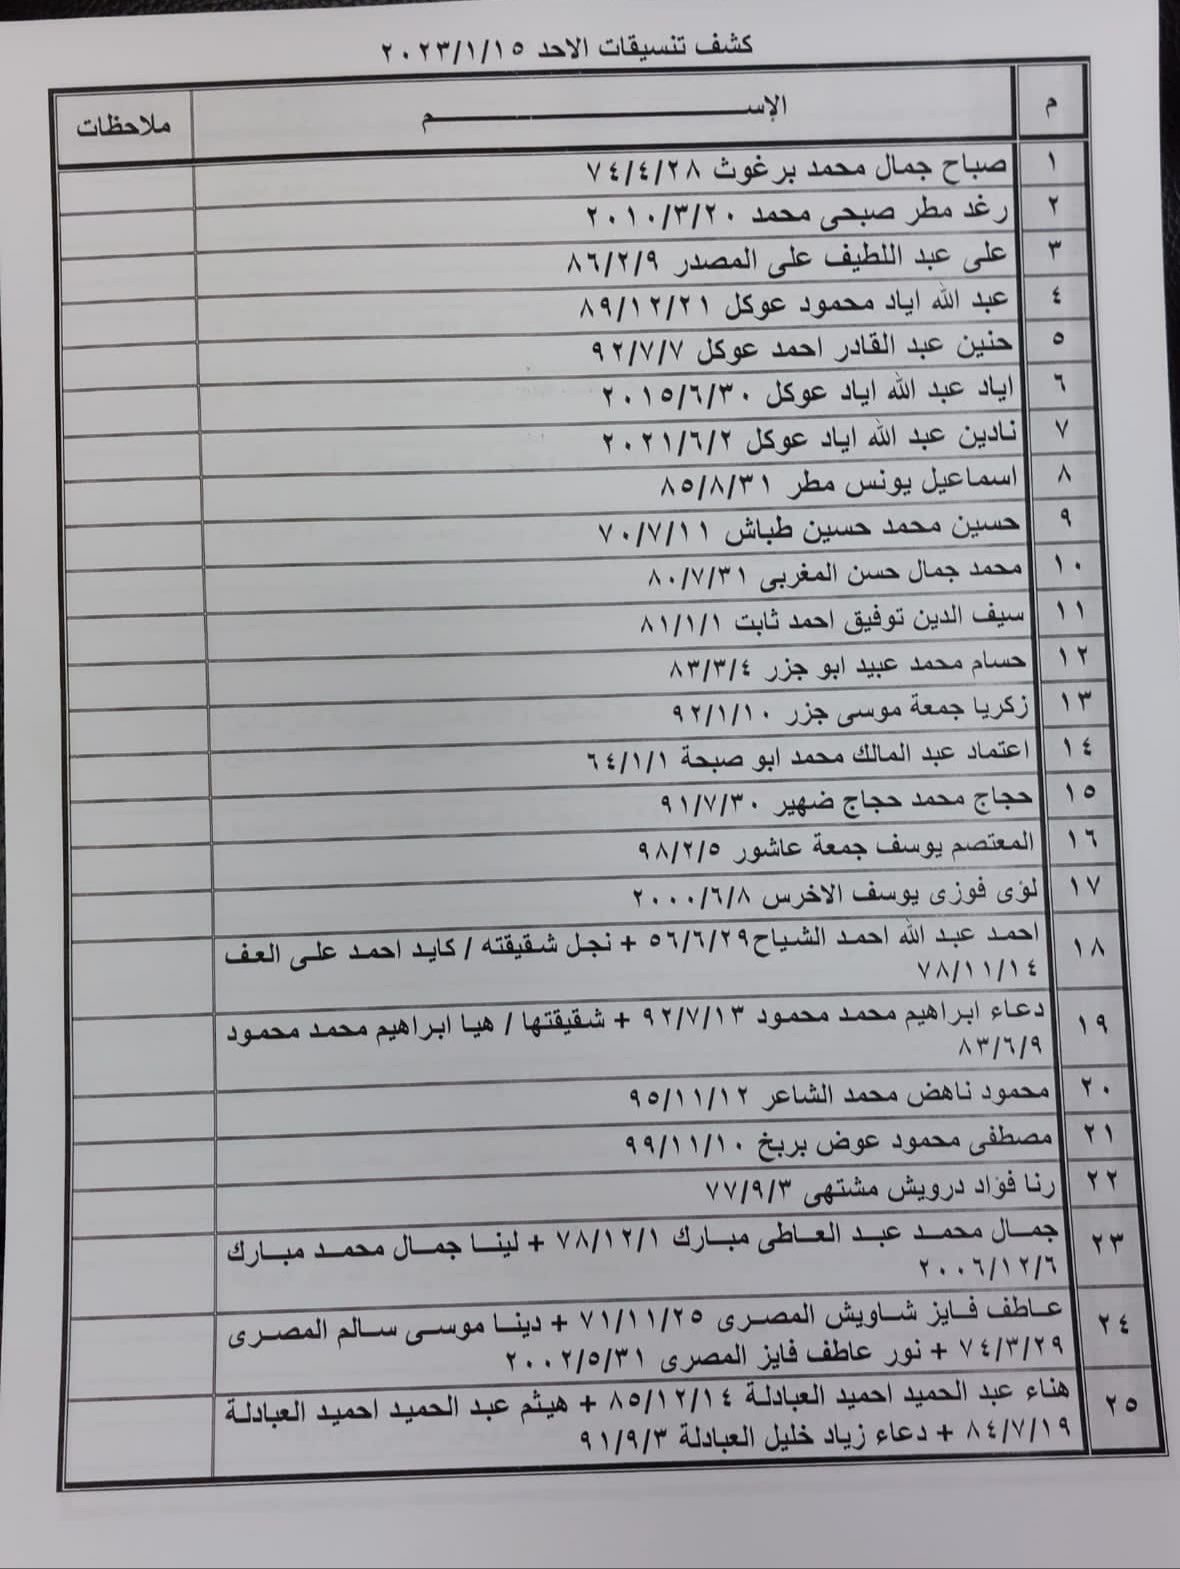 كشف تنسيقات الاحد ٢٠٢٣/١/١٥
م الإســـــــــــم ملاحظات
١ صباح جمال محمد برغوث ٧٤/٤/٢٨
٢ رغد مطر صبحى محمد ٢٠١٠/٣/٢٠
٣ على عبد اللطيف على المصدر ٨٦/٢/٩
٤ عبد الله اياد محمود عوكل ٨٩/١٢/٢١
٥ حنين عبد القادر احمد عوكل ٩٢/٧/٧
٦ اياد عبد الله اياد عوكل ٢٠١٥/٦/٣٠
٧ نادين عبد الله اياد عوكل ٢٠٢١/٦/٢
٨ اسماعيل يونس مطر ٨٥/٨/٣١
٩ حسين محمد حسين طباش ٧٠/٧/١١
١٠ محمد جمال حسن المغربى ٨٠/٧/٣١
١١ سيف الدين توفيق احمد ثابت ٨١/١/١
١٢ حسام محمد عبيد ابو جزر ٨٣/٣/٤
١٣ زكريا جمعة موسى جزر ٩٢/١/١٠
١٤ اعتماد عبد المالك محمد ابو صبحة ٦٤/١/١
١٥ حجاج محمد حجاج ضهير ٩١/٧/٣٠
١٦ المعتصم يوسف جمعة عاشور ٩٨/٢/٥
١٧ لؤى فوزى يوسف الاخرس ٢٠٠٠/٦/٨
١٨ احمد عبد الله احمد الشياح٥٦/٦/٢٩ + نجل شقيقته / كايد احمد على العف
٧٨/١١/١٤
١٩ دعاء ابراهيم محمد محمود ٩٢/٧/١٣ + شقيقتها / هيا ابراهيم محمد محمود
٨٣/٦/٩
٢٠ محمود ناهض محمد الشاعر ٩٥/١١/١٢
٢١ مصطفى محمود عوض بربخ ٩٩/١١/١٠
٢٢ رنا فؤاد درويش مشتهى ٧٧/٩/٣
٢٣ جمال محمد عبد العاطى مبارك ٧٨/١٢/١ + لينا جمال محمد مبارك
٢٠٠٦/١٢/٦
٢٤ عاطف فايز شاويش المصرى ٧١/١١/٢٥ + دينا موسى سالم المصرى
٧٤/٣/٢٩ + نور عاطف فايز المصرى ٢٠٠٢/٥/٣١
٢٥ هناء عبد الحميد احميد العبادلة ٨٥/١٢/١٤ + هيثم عبد الحميد احميد العبادلة
٨٤/٧/١٩ + دعاء زياد خليل العبادلة ٩١/٩/٣